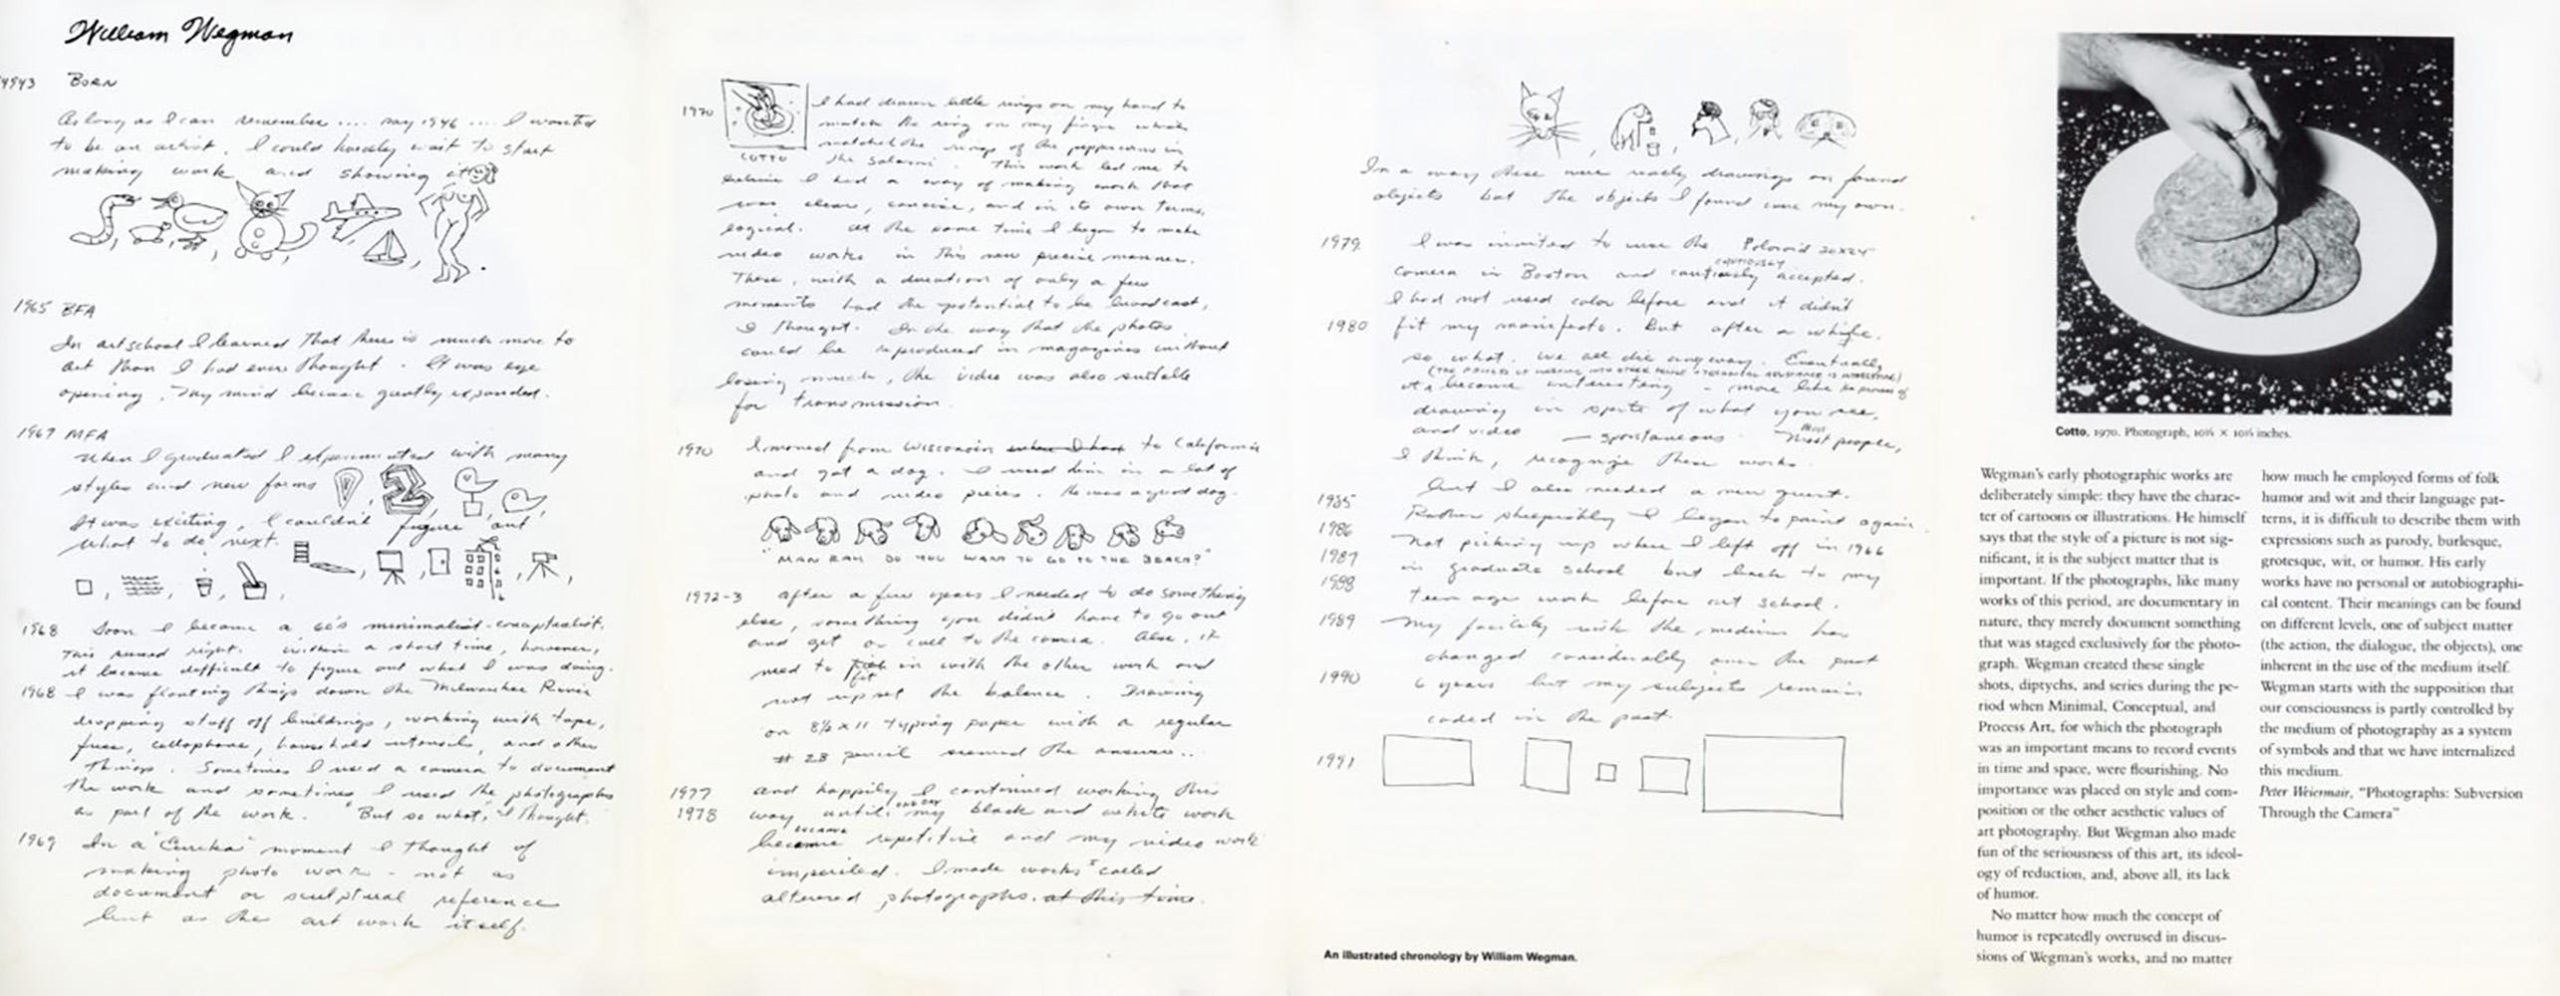 William Wegman
1943 BORN
As long as I can remember .... say 1946 .... I wanted
to be an artist. I could hardly wait to start
making work and showing it
1965 BFA
In art school I learned that there is much more to
art than I had ever thought. It was eye
opening. My mind became greatly expanded.
1967 MFA
When I graduated I experimented with many
styles and new forms
It was exciting, I couldn't figure out
what to do next.
1968 Soon I became a 60's minimalist-conceptualist.
This seemed right. Within a short time, however,
it became difficult to figure out what I was doing.
1968 I was floating things down the Milwaukee River
dropping stuff off buildings, working with tape,
fuse, cellophane, household utensils, and other
things. Sometimes I used a camera to document
the work and sometimes I used the photographs
as part of the work. "But so what," I thought.
1969 In a "Eureka" moment I thought of
making photo work - not as
document or sculptural reference
but as the art work itself.
1970 I had drawn little rings on my hand to
match the ring on my finger which
matched the rings of the peppercorns in
COTTO the salami. This work led me to
believe I had a way of making work that
was clear, concise, and in its own terms,
logical. At the same time I began to make
video works in this new precise manner.
These, with a duration of only a few
moments had the potential to be broadcast,
I thought. In the way that the photos
could be reproduced in magazines without
losing much, the video was also suitable
for transmission.
1970 I moved from Wisconsin when I had to California
and got a dog. I used him in a lot of
photo and video pieces. He was a good dog.
"MAN RAY DO YOU WANT TO GO TO THE BEACH?"
1972-3 After a few years I needed to do something
else, something you didn't have to go out
and get or call to the camera. Also, it
need to fit in with the other work and
fit
not upset the balance. Drawing
on 8½ x 11 typing paper with a regular
# 2B pencil seemed the answer...
1977 and happily I continued working this
1978 way until my black and white work
became
became repetitive and my video work
imperiled. I made works called
altered photographs. at this time.
In a way these were really drawings on found
objects but the objects I found were my own.
1979 I was invited to use the Polaroid 20x24
CAUTIOUSLY
camera in Boston and cautiously accepted.
I had not used color before and it didn't
1980 fit my manifesto. But after a while.
so what. We all die anyway. Eventually
it became interesting - more like the process of
drawing in spite of what you see,
and video — spontaneous. Most people,
I think, recognize these works.
1985 but I also needed a new quest.
1986 Rather sheepishly I began to paint again
1987 not picking up where I left off in 1966
1988 in graduate school but back to my
teen age work before art school.
1989 My facility with the medium has
changed considerably over the past
1990 6 years but my subjects remain
coded in the past.
1991
An illustrated chronology by William Wegman.
Cotto, 1970. Photograph, 10½ × 10½ inches.
Wegman's early photographic works are
deliberately simple: they have the charac-
ter of cartoons or illustrations. He himself
says that the style of a picture is not sig-
nificant, it is the subject matter that is
important. If the photographs, like many
works of this period, are documentary in
nature, they merely document something
that was staged exclusively for the photo-
graph. Wegman created these single
shots, diptychs, and series during the pe-
riod when Minimal, Conceptual, and
Process Art, for which the photograph
was an important means to record events
in time and space, were flourishing. No
importance was placed on style and com-
position or the other aesthetic values of
art photography. But Wegman also made
fun of the seriousness of this art, its ideol-
ogy of reduction, and, above all, its lack
of humor.
No matter how much the concept of
humor is repeatedly overused in discus-
sions of Wegman's works, and no matter
how much he employed forms of folk
humor and wit and their language pat-
terns, it is difficult to describe them with
expressions such as parody, burlesque,
grotesque, wit, or humor. His early
works have no personal or autobiographi-
cal content. Their meanings can be found
on different levels, one of subject matter
(the action, the dialogue, the objects), one
inherent in the use of the medium itself.
Wegman starts with the supposition that
our consciousness is partly controlled by
the medium of photography as a system
of symbols and that we have internalized
this medium.
Peter Weiermair, "Photographs: Subversion
Through the Camera"